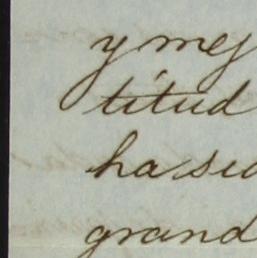 y mej
titud
ha sid
grand